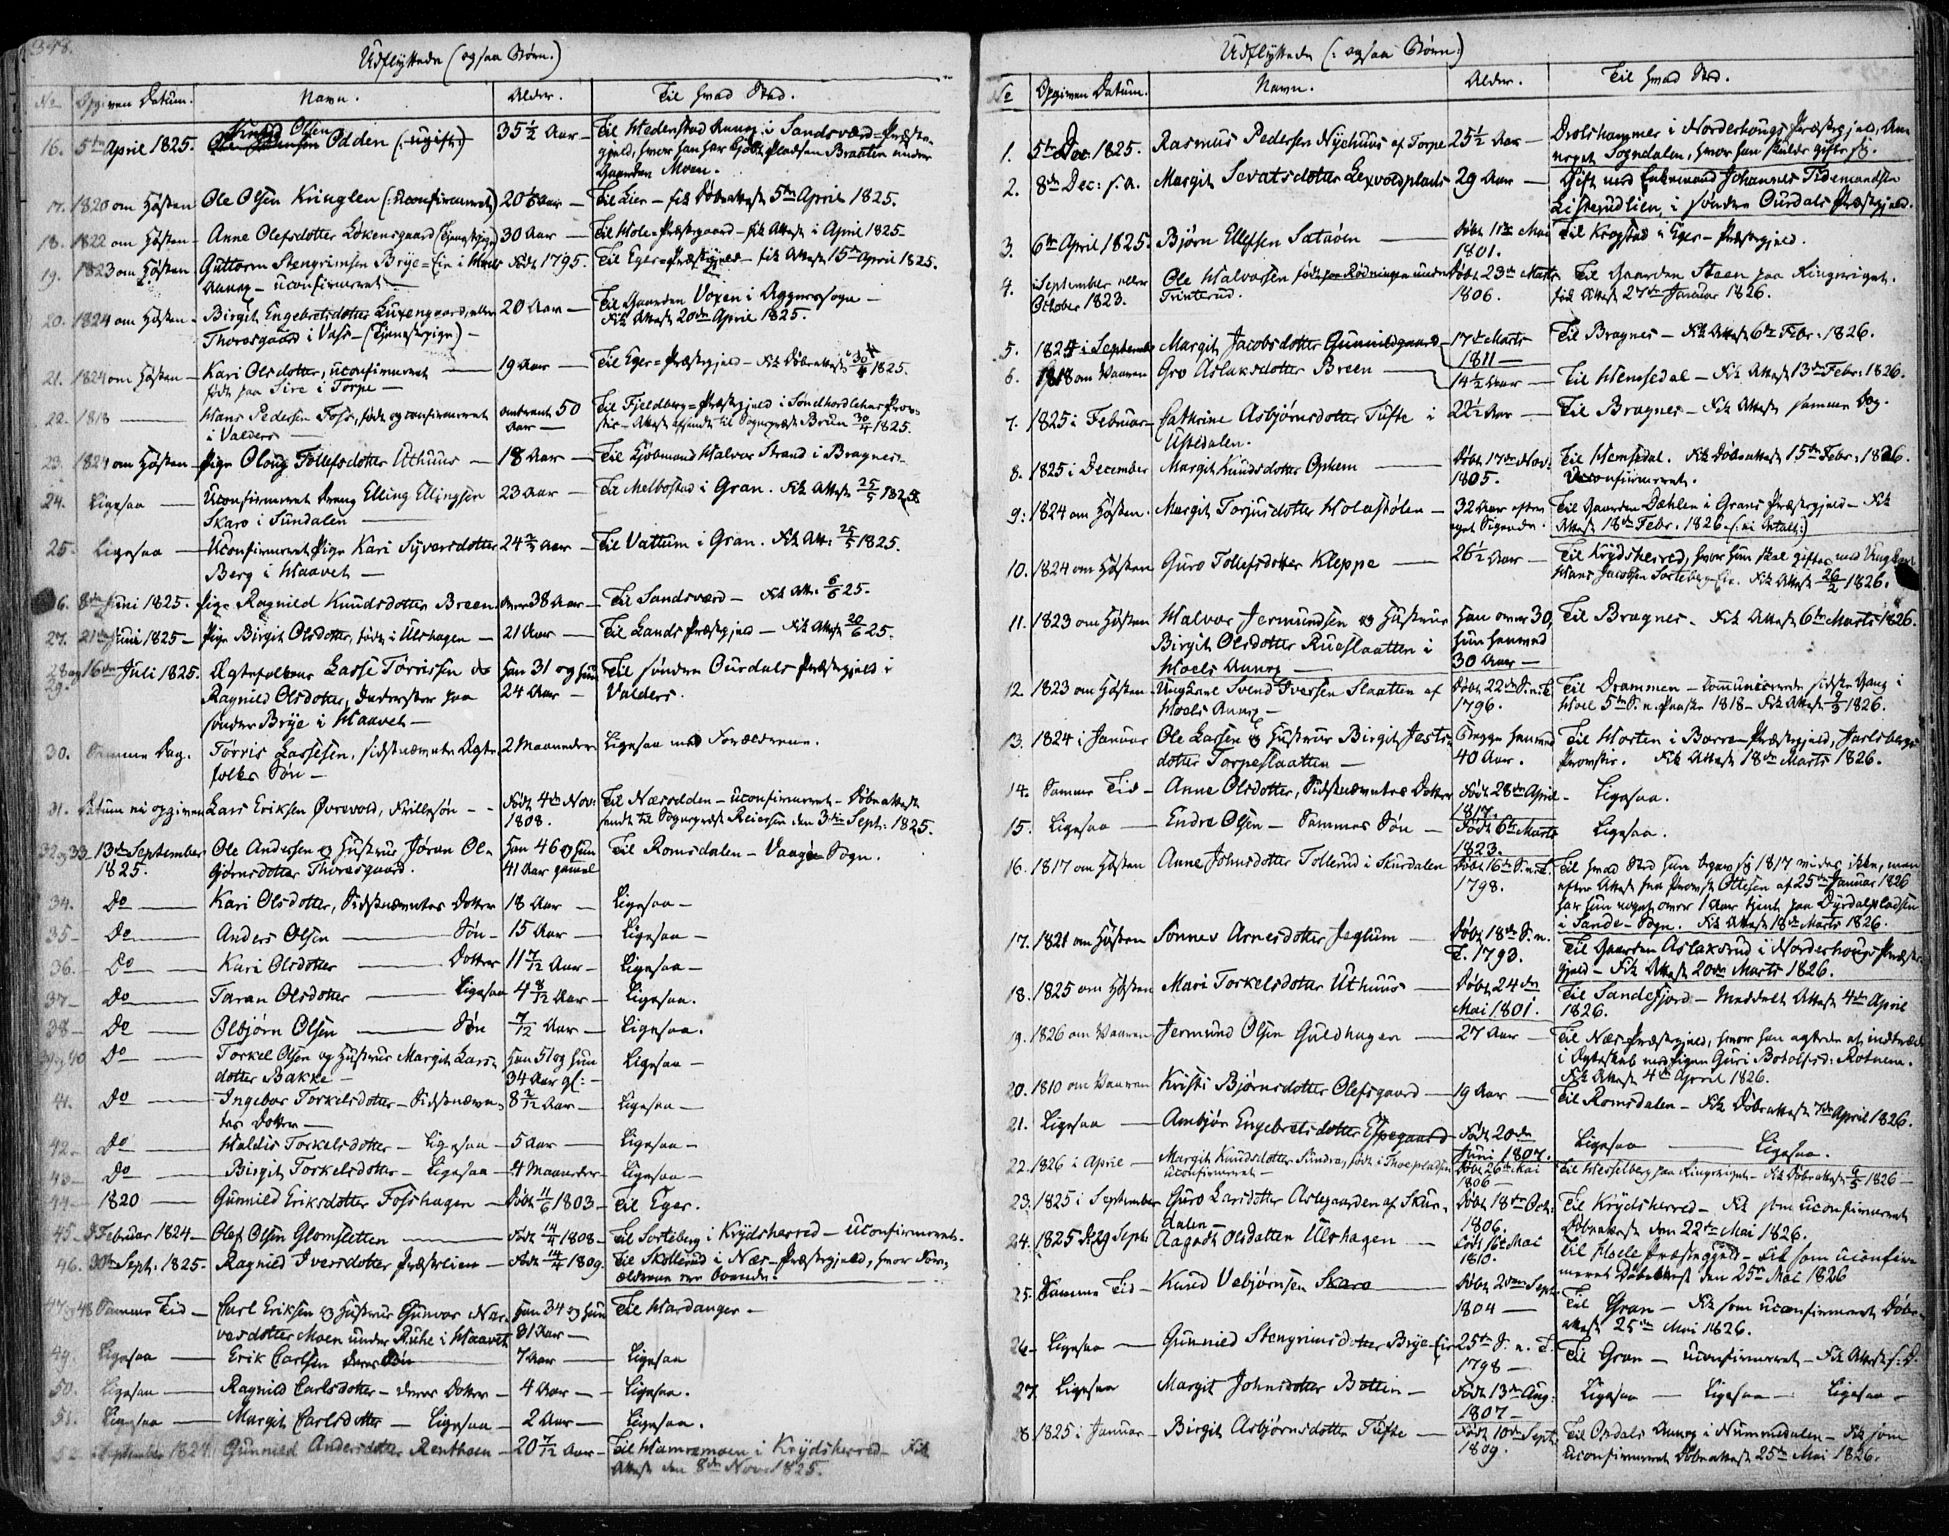 348.
Udflyttede (ogsaa Børn.)
No Opgiven Datum. Navn. Alder. Til hvad Sted.
16. 5te April 1825. Olsen Odden (: ugift) 35½ Aar — Til Medenstad Annex i Sandsværd-Præste-
gjeld, hvor han har kjøbt Pladsen Braaten under
Gaarden Moen.
17. 1820 om Høsten Ole Olsen Kringlen (: uconfirmeret) 20 Aar — Til Lier — fik Døbeattest 5te April 1825.
18. 1822 om Høsten — Anne Olefsdotter Løkensgaard (Tjenestpige) 30 Aar — Til Hole-Præstegaard — fik Attest i April 1825.
19. 1823 om Høsten — Guttorm Stengrimsen Brye-Eie i
Annex — uconfirmeret — Født 1795. Til Eger-Præstgjeld — fik Attest 15de April 1825.
20. 1824 om Høsten — Birgit Engebretsdotter Luxengaard, eller 20 Aar — Til Gaarden Voxen i Aggerssogn —
Thoresgaard i Vass — (Tjenestepige) — Fik Attest 20de April 1825.
21. 1824 om Høsten — Kari Olsdotter, uconfirmeret 19 Aar — Til Eger-Præstgjeld — Fik Døbeattest 30/4 1825.
født paa Sire i Torpe —
22. 1818 — Hans Pedersen Foss, født og confirmeret omtrent 50 Til Fjeldberg-Præstgjeld i Søndhordlehns Prov-
i Valders — Aar — stie — Attest afsendt til Sogneprest Bruun 30/4 1825.
23. 1824 om Høsten — Pige Oloug Tollefsdotter Uthuus — 18 Aar — Til Kjøbmand Halvor Strand i Bragnes.
24. Ligesaa — Uconfirmeret Dreng Elling Ellingsen 23 Aar — Til Melbostad i Gran. Fik Attest 25/5 1825.
Skaro i Sundalen —
25. Ligesaa — Uconfirmeret Pige Kari Syversdotter 24 Aar — Til Vattum i Gran. Fik Att. 25/5 1825.
Berg i Haavet —
26. 8de Juni 1825. Pige Ragnild Knudsdotter Breen over 38 Aar — Til Sandsværd — Fik Att. 6/6 25.
27. 21de Juni 1825 — Pige Birgit Olsdotter, født i Ulshagen — 21 Aar — Til Lands Præstgjeld — Fik Attest 20/6 25.
28 og 29. 16de Juli 1825. Ægtefolkene Lasse Torrissen og Han 31 og hun Til søndre Ourdals Præstgjeld i
Ragnild Olsdotter, Inderster paa 24 Aar — Valders.
søndre Brye i Haavet —
30. Samme Dag. Torris Lassesen, sidstnævnte Ægte- 2 Maaneder Ligesaa med Forældrene.
folks Søn —
31. Datum ei opgiven Lars Eriksen Øvrevold, Frillesøn — Født 4de Nov: Til Næsodden — uconfirmeret — Døbeattest
1808. sendt til Sogneprest Reiersen den 3die Sept: 1825.
32 og 33. 13de September Ole Andersen og Hustrue Jøran Ol- Han 46 og hun Til Romsdalen — Vaagøe Sogn.
1825. bjørnsdotter Thoresgaard. 41 Aar gamel
34. Do — Kari Olsdotter, Sidstnævntes Dotter 18 Aar — Ligesaa —
35 — Do — Anders Olsen — Søn — 15 Aar — Ligesaa —
36. — Do — Kari Olsdotter — Dotter 11 7/12 Aar — Ligesaa —
37 — Do — Taran Olsdotter — Ligesaa 4 8/12 Aar — Ligesaa.
38 — Do — Olbjørn Olsen — Søn 7/12 Aar — Ligesaa.
39 og 40 Do — Torkel Olsen og Hustrue Margit Lars- Han 51 og hun Ligesaa —
dotter Bakke — 34 Aar gl: —
41. Do — Ingebor Torkelsdotter — Sidstnævn- 8 2/12 Aar — Ligesaa —
tes Dotter —
42. — Do — Haldis Torkelsdotter — Ligesaa — 5 Aar — Ligesaa —
43 — Do — Birgit Torkelsdotter — Ligesaa — 4 Maaneder — Ligesaa —
44 — 1820 — Gunnild Eriksdotter Fosshagen — Født 11/6 1803 — Til Eger.
45 — Februar 1824 — Olef Olsen Glomsletten — Født 14/4 1808 — Til Sorteberg i Krydsherred — uconfirmeret.
46. 30te Sept: 1825 — Ragnild Iversdotter Præstelien — Født 14/4 1809. Til Skollerud i Næs-Præstgjeld, hvor For-
ældrene ere boende.
47 og 48 Samme Tid — Carl Eriksen og Hustrue Gunvor Nar- Han 34 og hun Til Hardanger —
vesdotter Moen under Ruhe i Haavet 31 Aar —
49. Ligesaa — Erik Carlsen deres Søn 7 Aar — Ligesaa
50. Ligesaa — Ragnild Carlsdotter — deres Dotter — 4 Aar — Ligesaa.
51. Ligesaa — Margit Carlsdotter — Ligesaa — 2 Aar — Ligesaa.
52. September 1824. Gunnild Andersdotter Renthoen — 20 7/12 Aar — Til Hamremoen i Krydsherred — Fik
Attest den 8de Novb 1825.
Udflyttede (: ogsaa Børn:)
No Opgiven Datum. Navn. Alder. Til hvad Sted.
1. 5te Dec. 1825. Rasmus Pedersen Nyehuus af Torpe 25½ Aar — Drolshammer i Norderhougs Præstgjeld, An-
nexet Sogndalen, hvor han skulde gifte sig.
2. 8de Dec: s. a. Margit Sevatsdotter Lexvoldplads 29 Aar — Gift med Enkemand Johannes Tidemandsen
Listerudlien, i søndre Ourdals Præstgjeld.
3. 6te April 1825. Bjørn Ellefsen Sataøen — Døbt 11te Mai Til Krogstad i Eger-Præstgjeld.
1801.
4. i September eller Ole Halvorsen født paa Rødningen under Døbt 23de Marts Til Gaarden Steen paa Ringeriget.
October 1823. Trinterud. 1806. fik Attest 27de Januar 1826.
5. 1825 i September Margit Jacobsdotter Gunnildgaard — 17de Marts Til Bragnes — Fik Attest 6te Febr: 1826.
1811 —
6. 1818 om Vaaren Gro Aslaksdotter Breen — 14½ Aar — Til Hemsedal — Fik Attest 13de Febr: 1826.
7. 1825 i Februar — Cathrine Asbjørnsdotter Tufte i 22½ Aar — Til Bragnes — Fik Attest samme Dag.
Ustedalen.
8. 1825 i December Margit Knudsdotter Ophem — Døbt 17de Nov: Til Hemsedal. Fik Døbeattest 15de Febr: 1826.
1805. Uconfirmeret.
9. 1824 om Høsten. Margit Torjusdotter Holastølen — 32 Aar efter Til Gaarden Dæhlen i Grans Præstgjeld — Fik
eget Sigende. Attest 18de Febr. 1826
10. 1824 om Høsten Guro Tollefsdotter Kleppe — 26½ Aar — Til Krydsherred, hvor hun skal giftes med Ungkarl
Hans Jacobsen Sorteberg-Eie. Fik Attest 26/2 1826.
11. 1823 om Høsten Halvor Jermundsen og Hustrue Han over 30, Til Bragnes. Fik Attest 6te Marts 1826.
Birgit Olsdotter Rueslaatten i hun henved
Hoels Annex — 30 Aar —
12. 1823 om Høsten Ungkarl Svend Iversen Slaatten af Døbt 22de S. n. T. Til Drammen — communicerede sidste Gang i
Hoels Annex — 1796. Hoel 5te S. n. Paaske 1818 — Fik Attest 1826.
13. 1824 i Januar Ole Larsen og Hustrue Birgit Josts- Begge henved Til Horten i Borre-Præstgjeld, Jarlsbergs
dotter Torpeslaatten — 40 Aar. Provstie. Fik Attest 18de Marts 1826.
14. Samme Tid — Anne Olsdotter, Sidstnævntes Dotter Født 28de April — Ligesaa.
1817.
15. Ligesaa — Endre Olsen — Sammes Søn — Født 6te Marts Ligesaa.
1823.
16. 1817 om Høsten Anne Johnsdotter Tollerud i Skurdalen Døbt 16de S. n. T. Til hvad Sted hun begav sig 1817 vides ikke, men
1798. efter Attest fra Provst Ottesen af 25de Januar 1826
har hun noget over 1 Aar tjent paa Dyrdalpladsen
i Sande-Sogn. Fik Attest 18de Marts 1826.
17. 1821 om Høsten Sønnev Arnesdotter Jeglum — Døbt 18de S. n. Til Gaarden Aslaksrud i Norderhougs Præst-
T. 1793. gjeld — Fik Attest 20de Marts 1826.
18. 1825 om Høsten Mari Torkelsdotter Uthuus — Døbt 24de Til Sandefjord — Meddelt Attest 4de April
Mai 1801. 1826.
19. 1826 om Vaaren Jermund Olsen Guldhagen — 27 Aar — Til Næs-Præstgjeld, hvor han agtede at indtræde
i Ægteskab med Pigen Guri Bodolfsd: Rotnem.
Fik Attest 4de April 1826.
20. 1810 om Vaaren Kristi Bjørnsdotter Olefsgaard — 19 Aar — Til Romsdalen — Fik Døbeattest 7de April 1826.
21. Ligesaa — Ambjør Engebretsdotter Espegaard Født 20de Ligesaa — Ligesaa.
Juni 1807.
22. 1826 i April — Margit Knudsdotter Sundre, født i Thoepladsen Døbt 26de Mai Til Hesselberg paa Ringeriget — Fik Døbeattest 9/5 1826 —
uconfirmeret — 1806 —
23. 1825 i September Guro Larsdotter Aslegaarden af Skur- Døbt 18de Oct: Til Krydsherred — Fik som uconfirmeret
dalen — 1806. Døbeattest den 22de Mai 1826.
24. 1825 D. 29 Sept: Aagodt Olsdatter Ulshagen — Født 16de Mai Til Hole Præstegjeld — Fik som uconfir-
1810. meret Døbeattest den 25de Mai 1826
25. Samme Tid — Knud Vebjørnsen Skaro Døbt 2den Sept. Til Gran — Fik som uconfirmeret Døbe-
1804 — attest 25de Mai 1826.
26 — Ligesaa — Gunnild Stengrimsdotter Brye-Eie 25de S. n. T. Til Gran — uconfirmeret — Fik Attest s. D.
1798 —
27. Ligesaa Margit Johnsdotter Bottin — Født 13de Aug: Ligesaa — Ligesaa — Ligesaa —
1807 —
28. 1825 i Januar — Birgit Asbjørnsdotter Tufte — Født 10de Sept: Til Opdals Annex i Nummedalen — Fik som
1809. Uconfirmeret Døbeattest 25de Mai 1826.